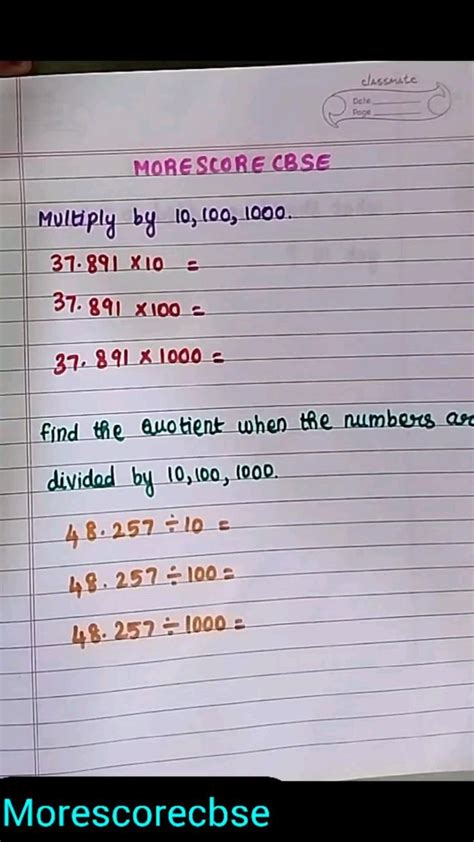 classmate
Date
Page
MORESCORE CBSE
Multiply by 10, 100, 1000.
37.891 × 10 =
37.891 × 100 =
37.891 × 1000 =
find the Quotient when the numbers are
divided by 10, 100, 1000.
48.257 ÷ 10 =
48.257 ÷ 100 =
48.257 ÷ 1000 =
Morescorecbse